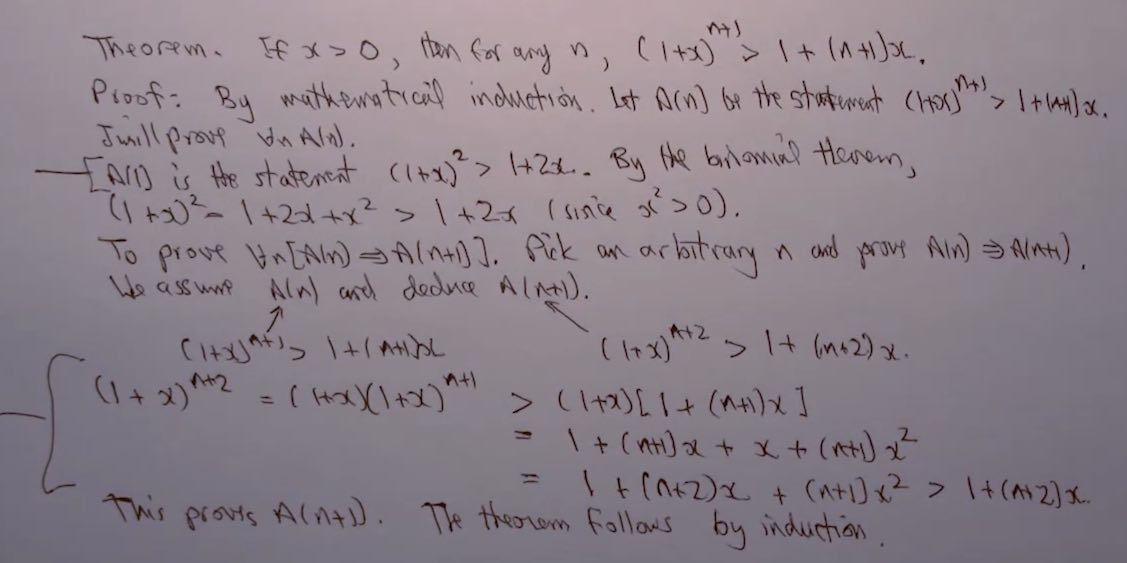 Theorem. If x > 0, then for any n, (1+x)^{n+1} > 1 + (n+1)x.
Proof: By mathematical induction. Let A(n) be the statement (1+x)^{n+1} > 1+(n+1)x.
I will prove ∀n A(n).
[A(1) is the statement (1+x)^2 > 1+2x. By the binomial theorem,
(1+x)^2 = 1+2x+x^2 > 1+2x (since x^2 > 0).
To prove ∀n[A(n) ⇒ A(n+1)]. Pick an arbitrary n and prove A(n) ⇒ A(n+1).
We assume A(n) and deduce A(n+1).
(1+x)^{n+1} > 1+(n+1)x (1+x)^{n+2} > 1 + (n+2)x.
(1+x)^{n+2} = (1+x)(1+x)^{n+1} > (1+x)[1 + (n+1)x]
= 1 + (n+1)x + x + (n+1)x^2
= 1 + (n+2)x + (n+1)x^2 > 1+(n+2)x.
This proves A(n+1). The theorem follows by induction.